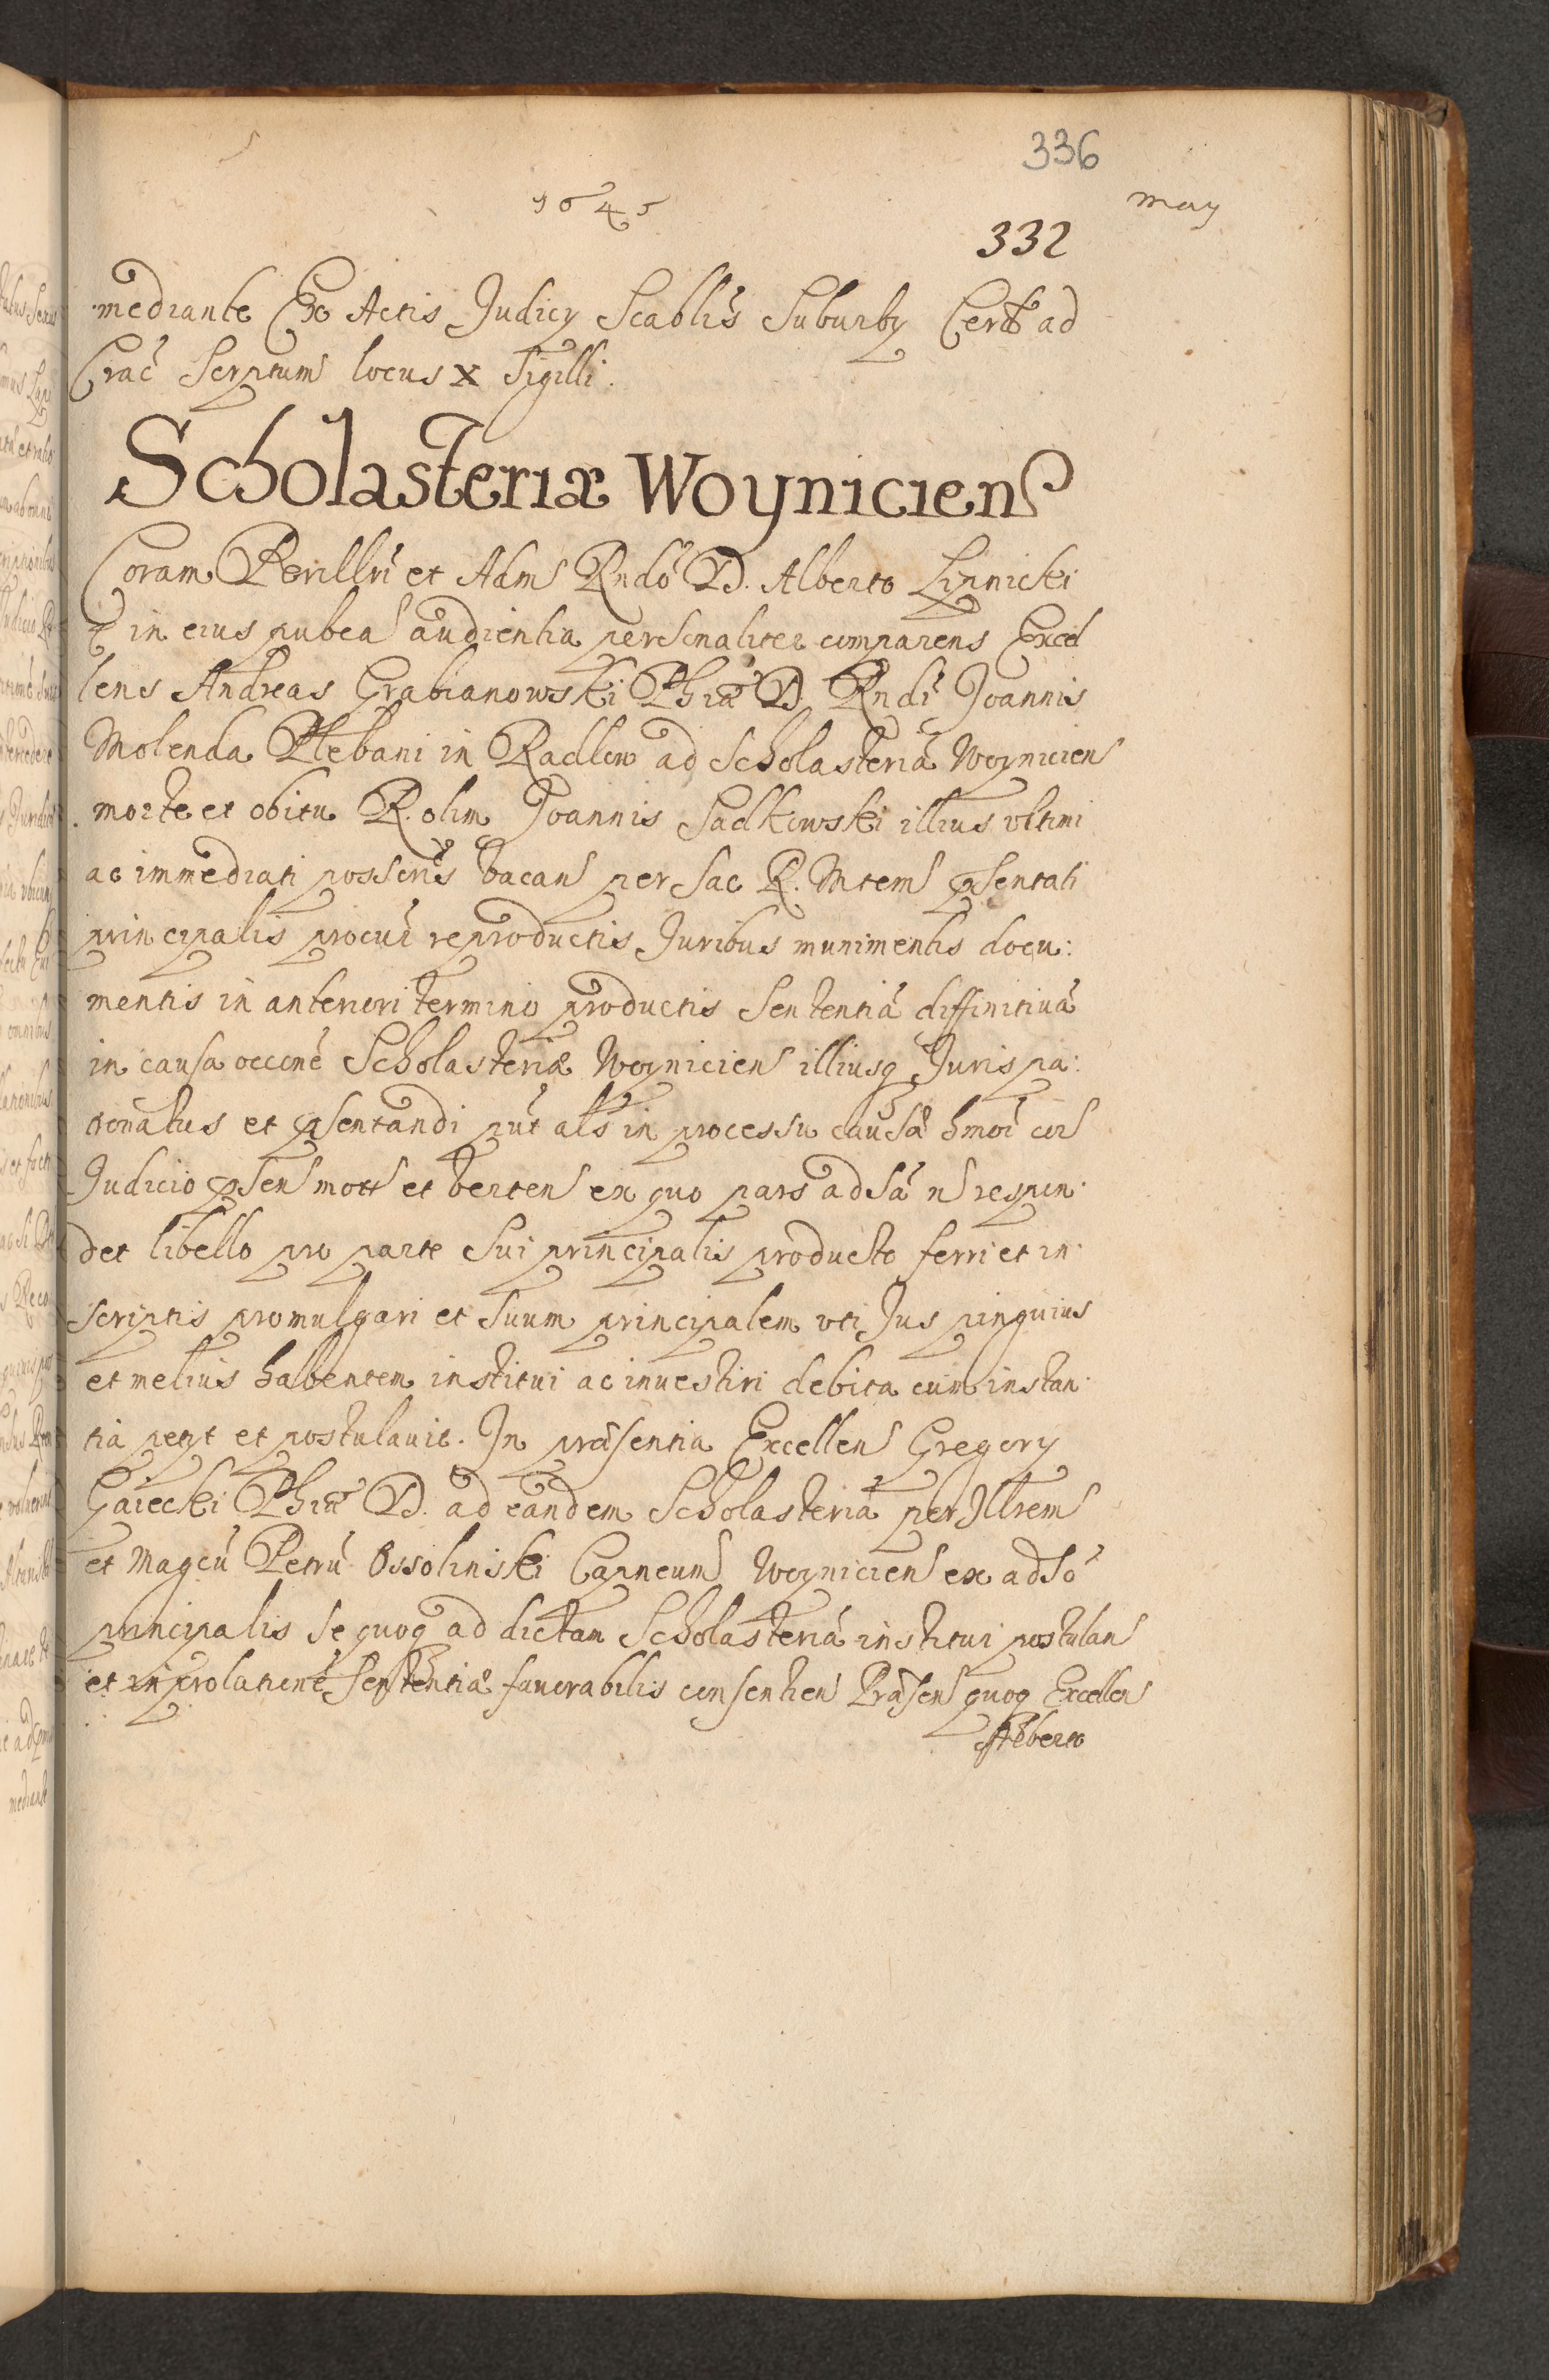 336
1645
May
332
mediante Ex Actis Judicy Scablis Suburby Cerd ad
Crac Scrptum locus x Sigilli.
Scholasteriæ Woyniciens
Coram Perillri et Adm Rndo D. Alberto Lipnicki
in eius pubca audientia personaliter comparens Excel
lens Andreas Grabianowski Phiæ D. Rndi Joannis
Molenda Plebani in Radlow ad Scholasteriã Woyniciens
morte et obitu R. olim Joannis Sadkowski illius vltimi
ac immediati possoris vacan per Sac R. Mtem psentati
principalis procur reproductis Juribus munimentis docu:
mentis in anteriori termino productis Sententiã diffinitiuã
in causa occõne Scholasteriæ Woyniciens illiusq Juris pa:
tronatus et psentandi put als in processu causæ hmoi cor
Judicio psen mott et verten ex quo pars adsa n respon:
det libello pro parte sui principalis producto ferri et in:
scriptis promulgari et suum principalem vti Jus pinguius
et melius habentem institui ac inuestiri debita cum instan:
tia petyt et postulauit. In præsentia Excellen Gregory
Gaiecki Phiæ D. ad eandem Scholasteriã per Illrem
et Magcũ Petrũ Ossolinski Capneum Woyniciens ex adso
principalis se quoq ad dictam Scholasteriã institui postulan
et in prolationẽ Sententiæ fauorabilis consentien Præsen quoq Excellen
Alberto